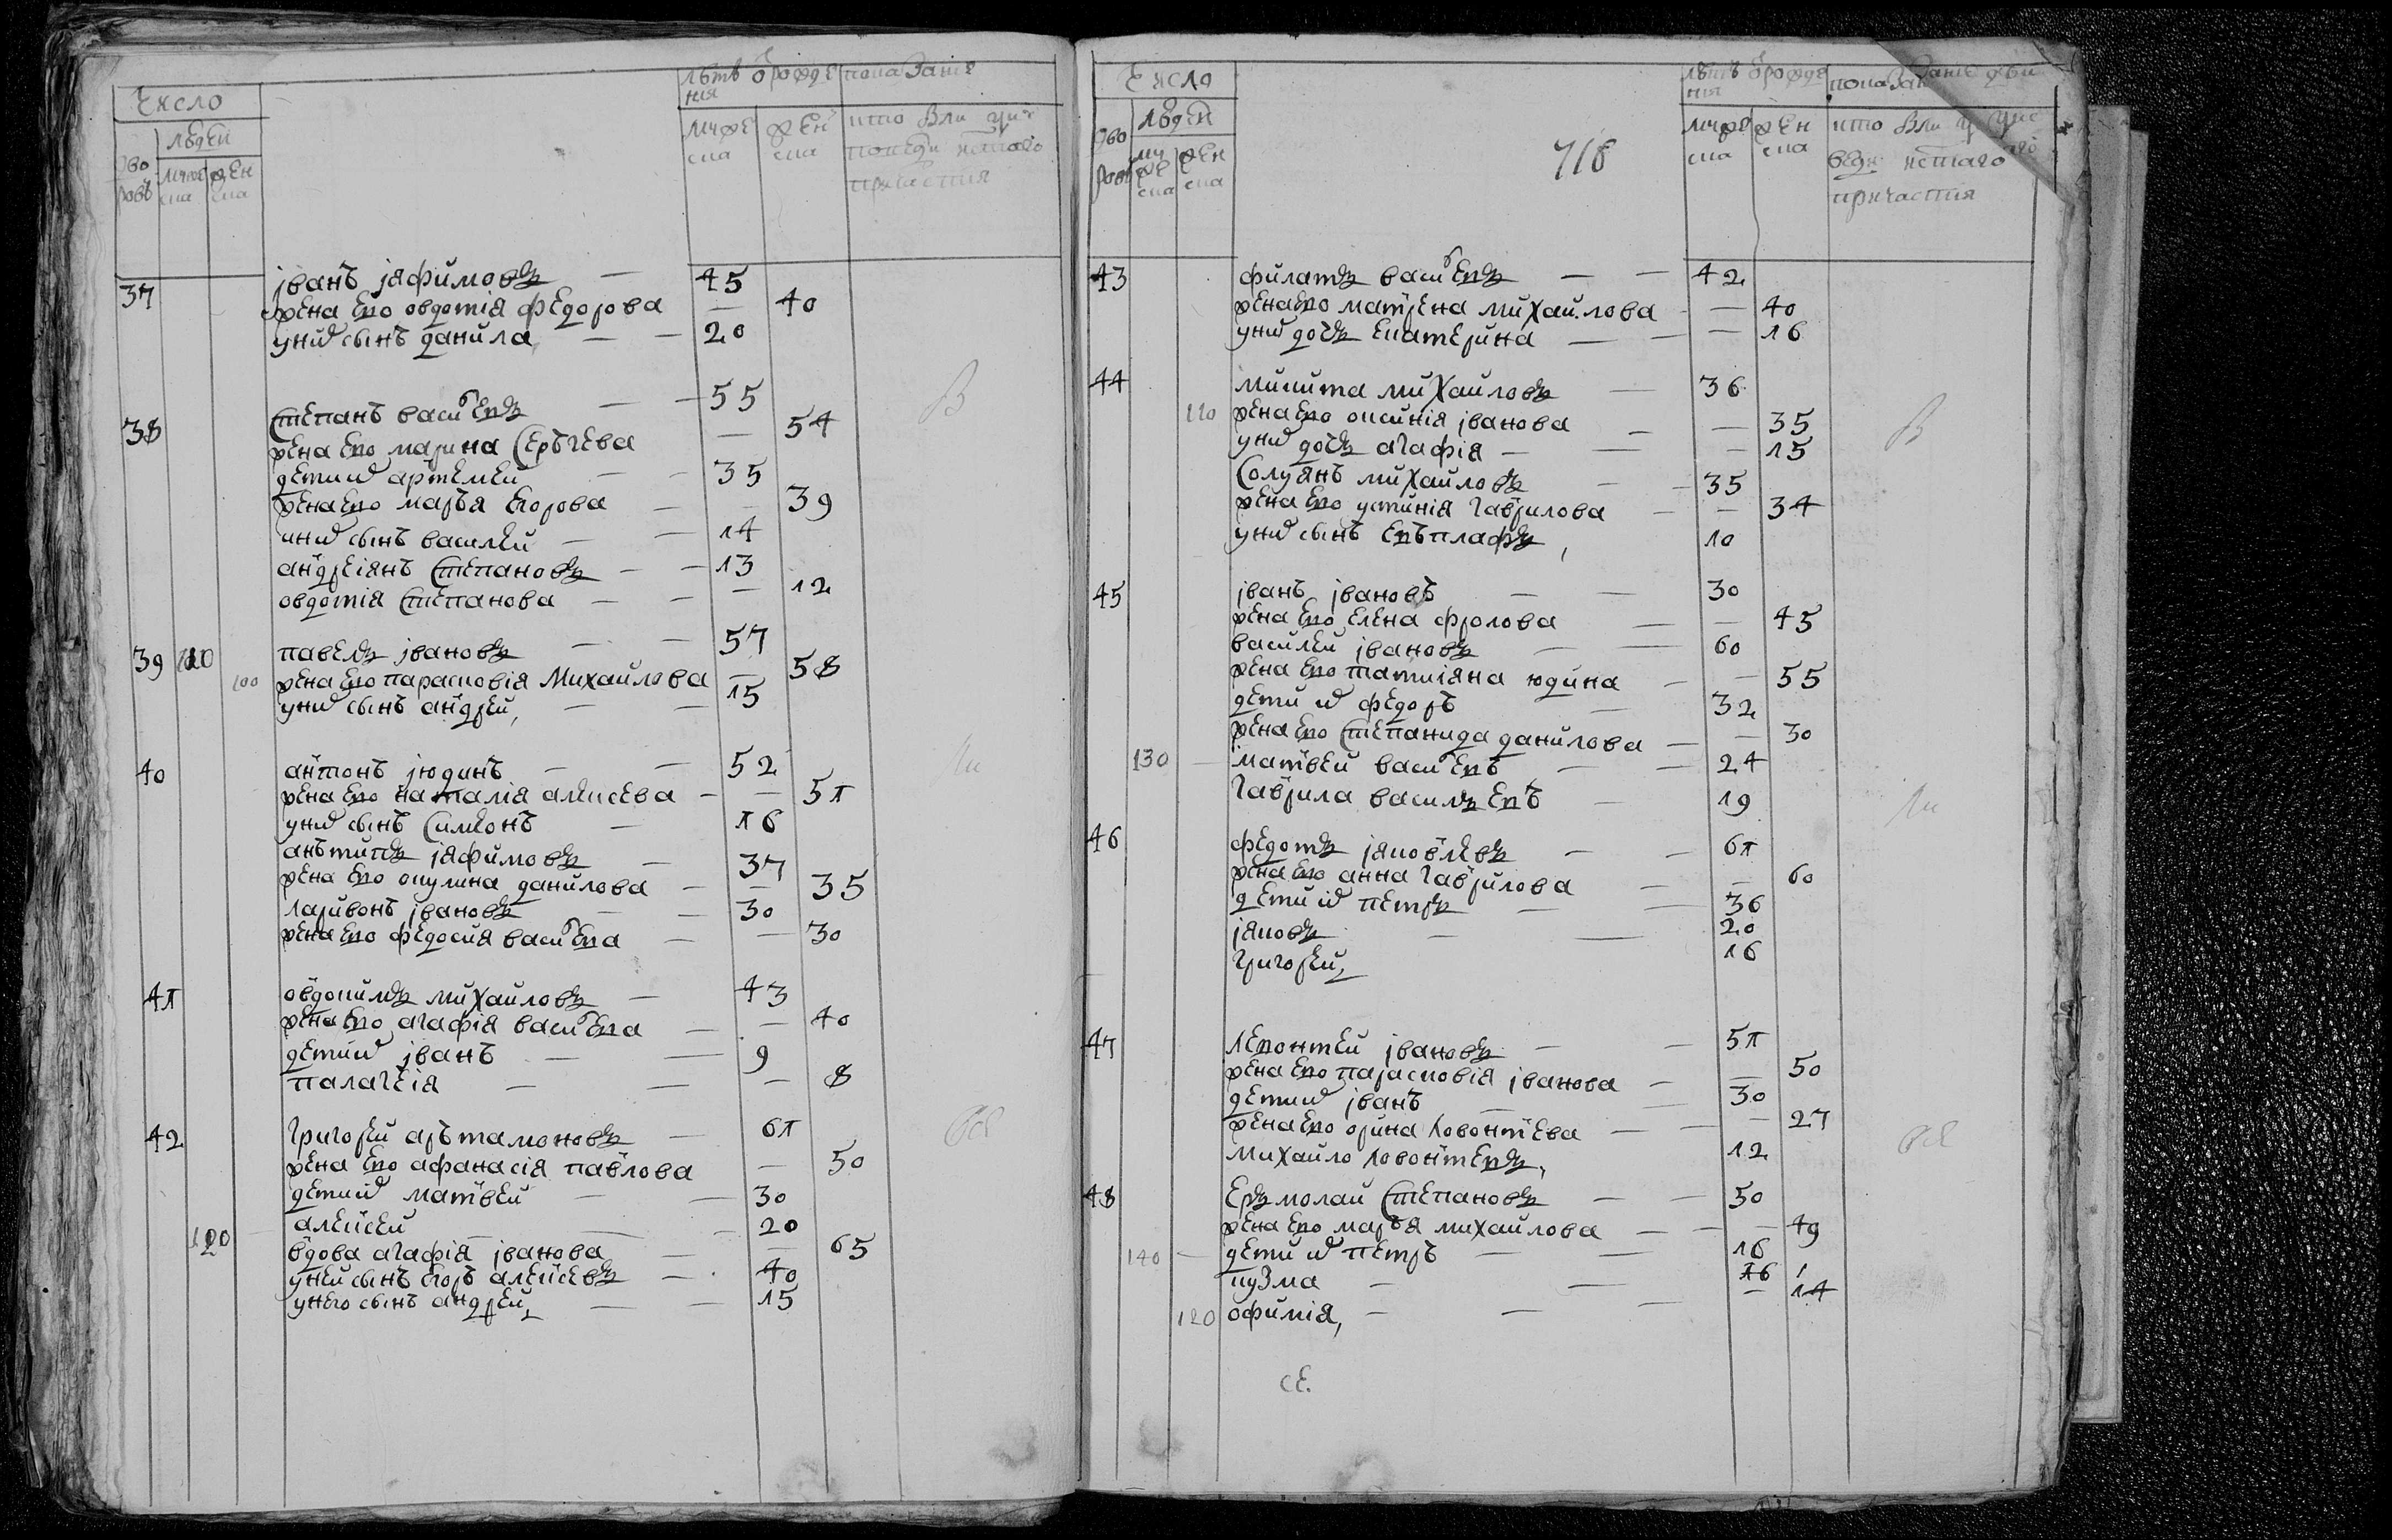 Число
лѣтъ ѿ рожде
нія
показаніе
дво
ровъ
людей
муже
ска
жен
ска
муже
ска
жен
ска
кто былъ у ис
поведи и с͠таго
причастия
37 іванъ іяѳимовъ — 45
жена ево овдотія федорова — 40
у них сынъ данила — — 20
38 степанъ васи͛евъ — — 55
жена ево марина сергѣева — 54
дети их артемей — — 35
жена ево марья егорова — — 39
у них сынъ василей — — 14
андреіянъ степановъ — — 13
овдотія степанова — — — 12
39 110 павелъ івановъ — — 57
100 жена ево парасковія михайлова — 58
у них сынъ андрей, — — 15
40 антонъ іюдинъ — — 52
жена ево наталія алексеева — — 51
у них сынъ симеонъ — 16
антипъ іяфимовъ — 37
жена ево окулина данилова — — 35
ларивонъ івановъ — — 30
жена ево федосия васи͛ева — — 30
41 овдокимъ михаиловъ — 43
жена ево агафія васи͛ева — — 40
дети их іванъ — — 9
палагѣія — — — 8
42 григорей артамоновъ — 61
жена ево афанасія павлова — 50
дети их матвей — — 30
120 алексей — — — 20
вдова агафія іванова — — 65
у ней сынъ егоръ алексеевъ — 40
у него сынъ андрей, — — 15
Число
718
лѣтъ ѿ рожде
нія
дво
ровъ
людей
му
же
ска
жен
ска
муже
ска
жен
ска
кто былъ
веди и с͠таго
причастия
43 филатъ васи͛евъ — — 42
жена ево матрена михаилова — — 40
у них дочь екатерина — — — 16
44 микита михаиловъ — 36
110 жена ево оксинія іванова — — 35
у них дочь агафія — — — 15
солуянъ михаиловъ — — 35
жена ево устинія гаврилова — — 34
у них сынъ евъплафъ, 10
45 іванъ івановъ — — 30
жена ево елена фролова — — 45
василей івановъ — — 60
жена ево татиіяна юдина — — 55
дети их федоръ — 32
жена ево степанида данилова — — 30
130 — матвей васи͛евъ — — 24
гаврила васильевъ — 19
46 федотъ іяковлевъ — — 61
жена ево анна гаврилова — — 60
дети их петръ — — 36
іяковъ — — 20
григорей, 16
47 левонтей івановъ — — 51
жена ево парасковія іванова — — 50
дети их іванъ — — 30
жена ево орина ловонтева — — — 27
михаило ловонтевъ, 12
48 ермолай степановъ — — 50
жена ево марья михаилова — — — 49
140 — дети их петръ — — 16
кузма — — 16
120 офимія, — — — — 14
се.